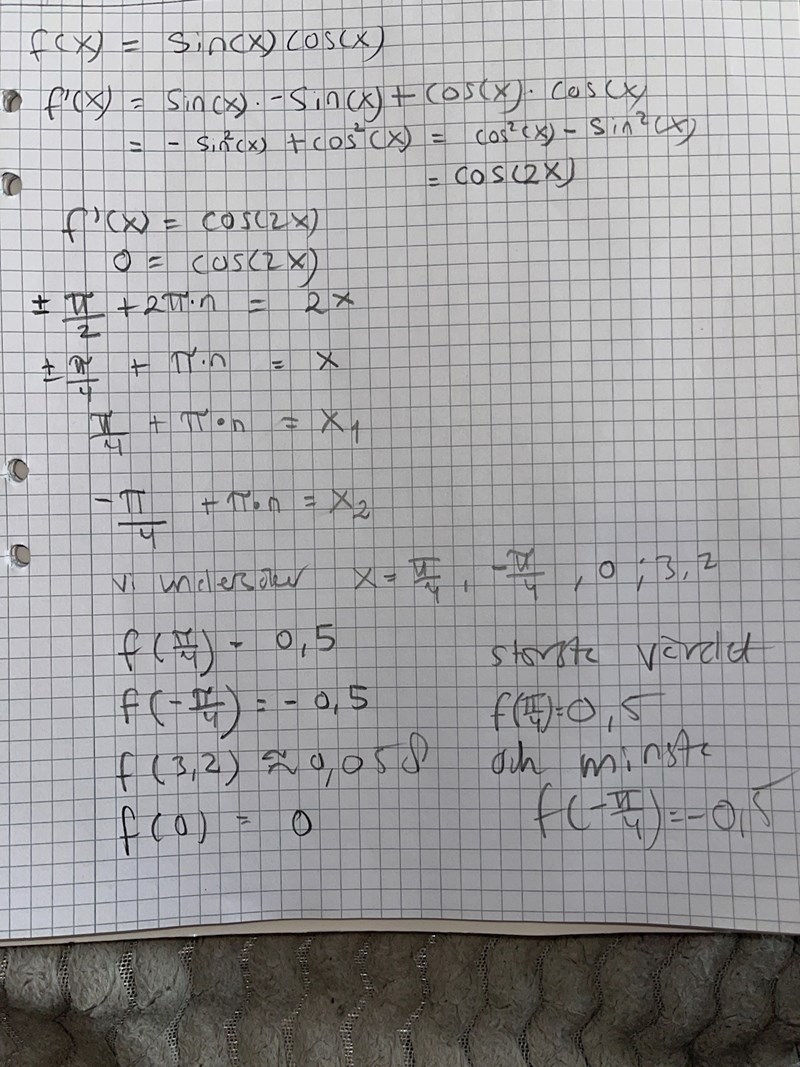 f(x) = sin(x) cos(x)
f'(x) = sin(x) · -sin(x) + cos(x) · cos(x)
= - sin²(x) + cos²(x) = cos²(x) - sin²(x)
= cos(2x)
f'(x) = cos(2x)
0 = cos(2x)
± π/2 + 2π·n = 2x
± π/4 + π·n = x
π/4 + π·n = x₁
-π/4 + π·n = x₂
vi undersöker x = π/4, -π/4, 0 ; 3,2
f(π/4) = 0,5
f(-π/4) = -0,5
f(3,2) ≈ 0,058
f(0) = 0
största värdet
f(π/4)=0,5
och minsta
f(-π/4)=-0,5